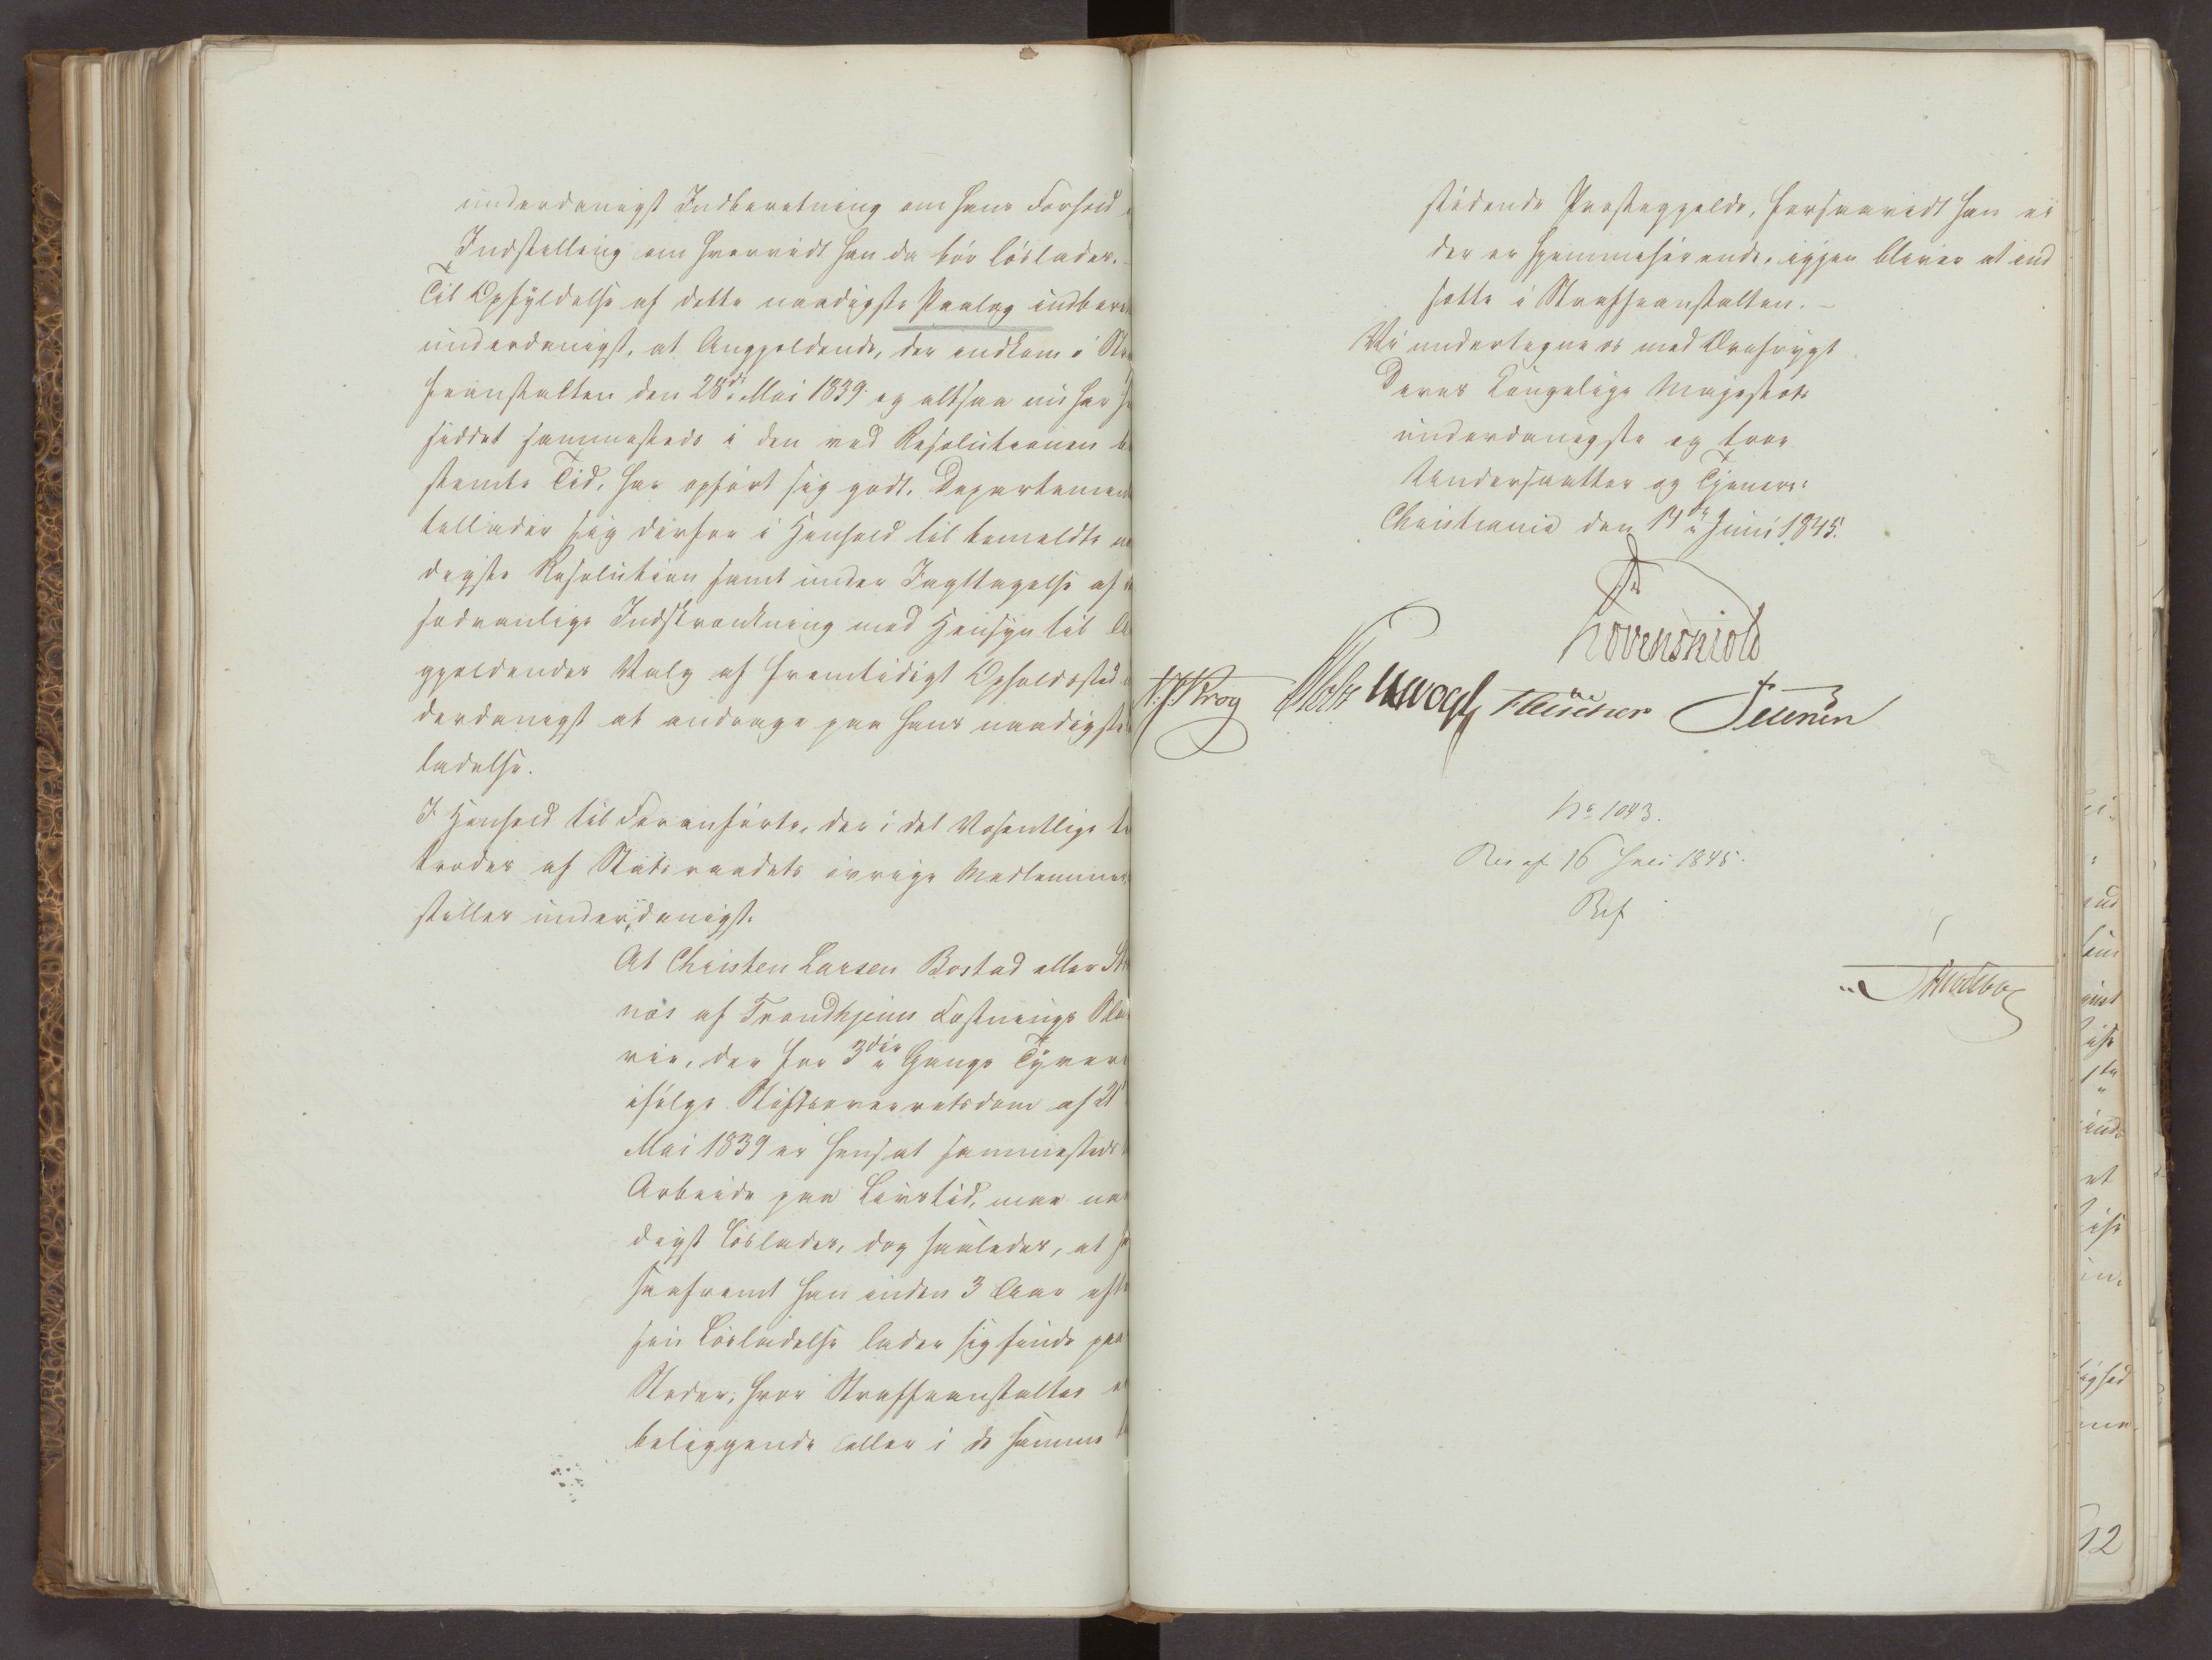 underdanigst Indberetning om hans Forhold
Indstilling om hvorvidt han da bør løslades.
Til Opfyldelse af dette naadigste Paalæg indberet
underdanigst, at Angjeldende, der indkom i Stra
feanstalten den 28de Mai 1839 og altsaa nu har
hiddet sammesteds i den ved Resolutionen be
stemte Tid, har opført sig godt. Departemen
tillader sig derfor i Henhold til bemeldte na
digste Resolution samt under Iagttagelse af
sædvanlige Indskrænkning med Hensyn til An
gjeldendes Valg af fremtidigt Opholdssted
derdanigst at andrage paa hans naadigste
ladelse.
I Henhold til Foranførte, der i det Væsentlige ti
trædes af Statsraadets øvrige Medlemmer
stilles underdanigst:
At Christen Larsen Bostad eller St
næs af Trondhjems Fæstnings Sla
veri, der for 3die Gangs Tyveri
ifølge Stiftsoverretsdom af 21
Mai 1839 er hensat sammesteds
Arbeide paa Livstid, maa naa
digst løslades, dog saaledes, at
saafremt han inden 3 Aar efte
sin Løsladelse lader sig finde paa
Steder, hvor Straffeanstalter er
beliggende eller i de samme
stødende Præstegjelde, forsaavidt han ei
der er hjemmehørende, igjen bliver at ind
sætte i Straffeanstalten. -
Vi undertegne os med Ærefrygt
Deres Kongelige Majestæts
underdanigste og troe
Undersaatter og Tjenere:
Christiania den 14de Juni 1845.
Løvenskiold
Krog Vogt Fleischer Petersen
No 1043.
Res af 16 Juli 1845.
Ref
12